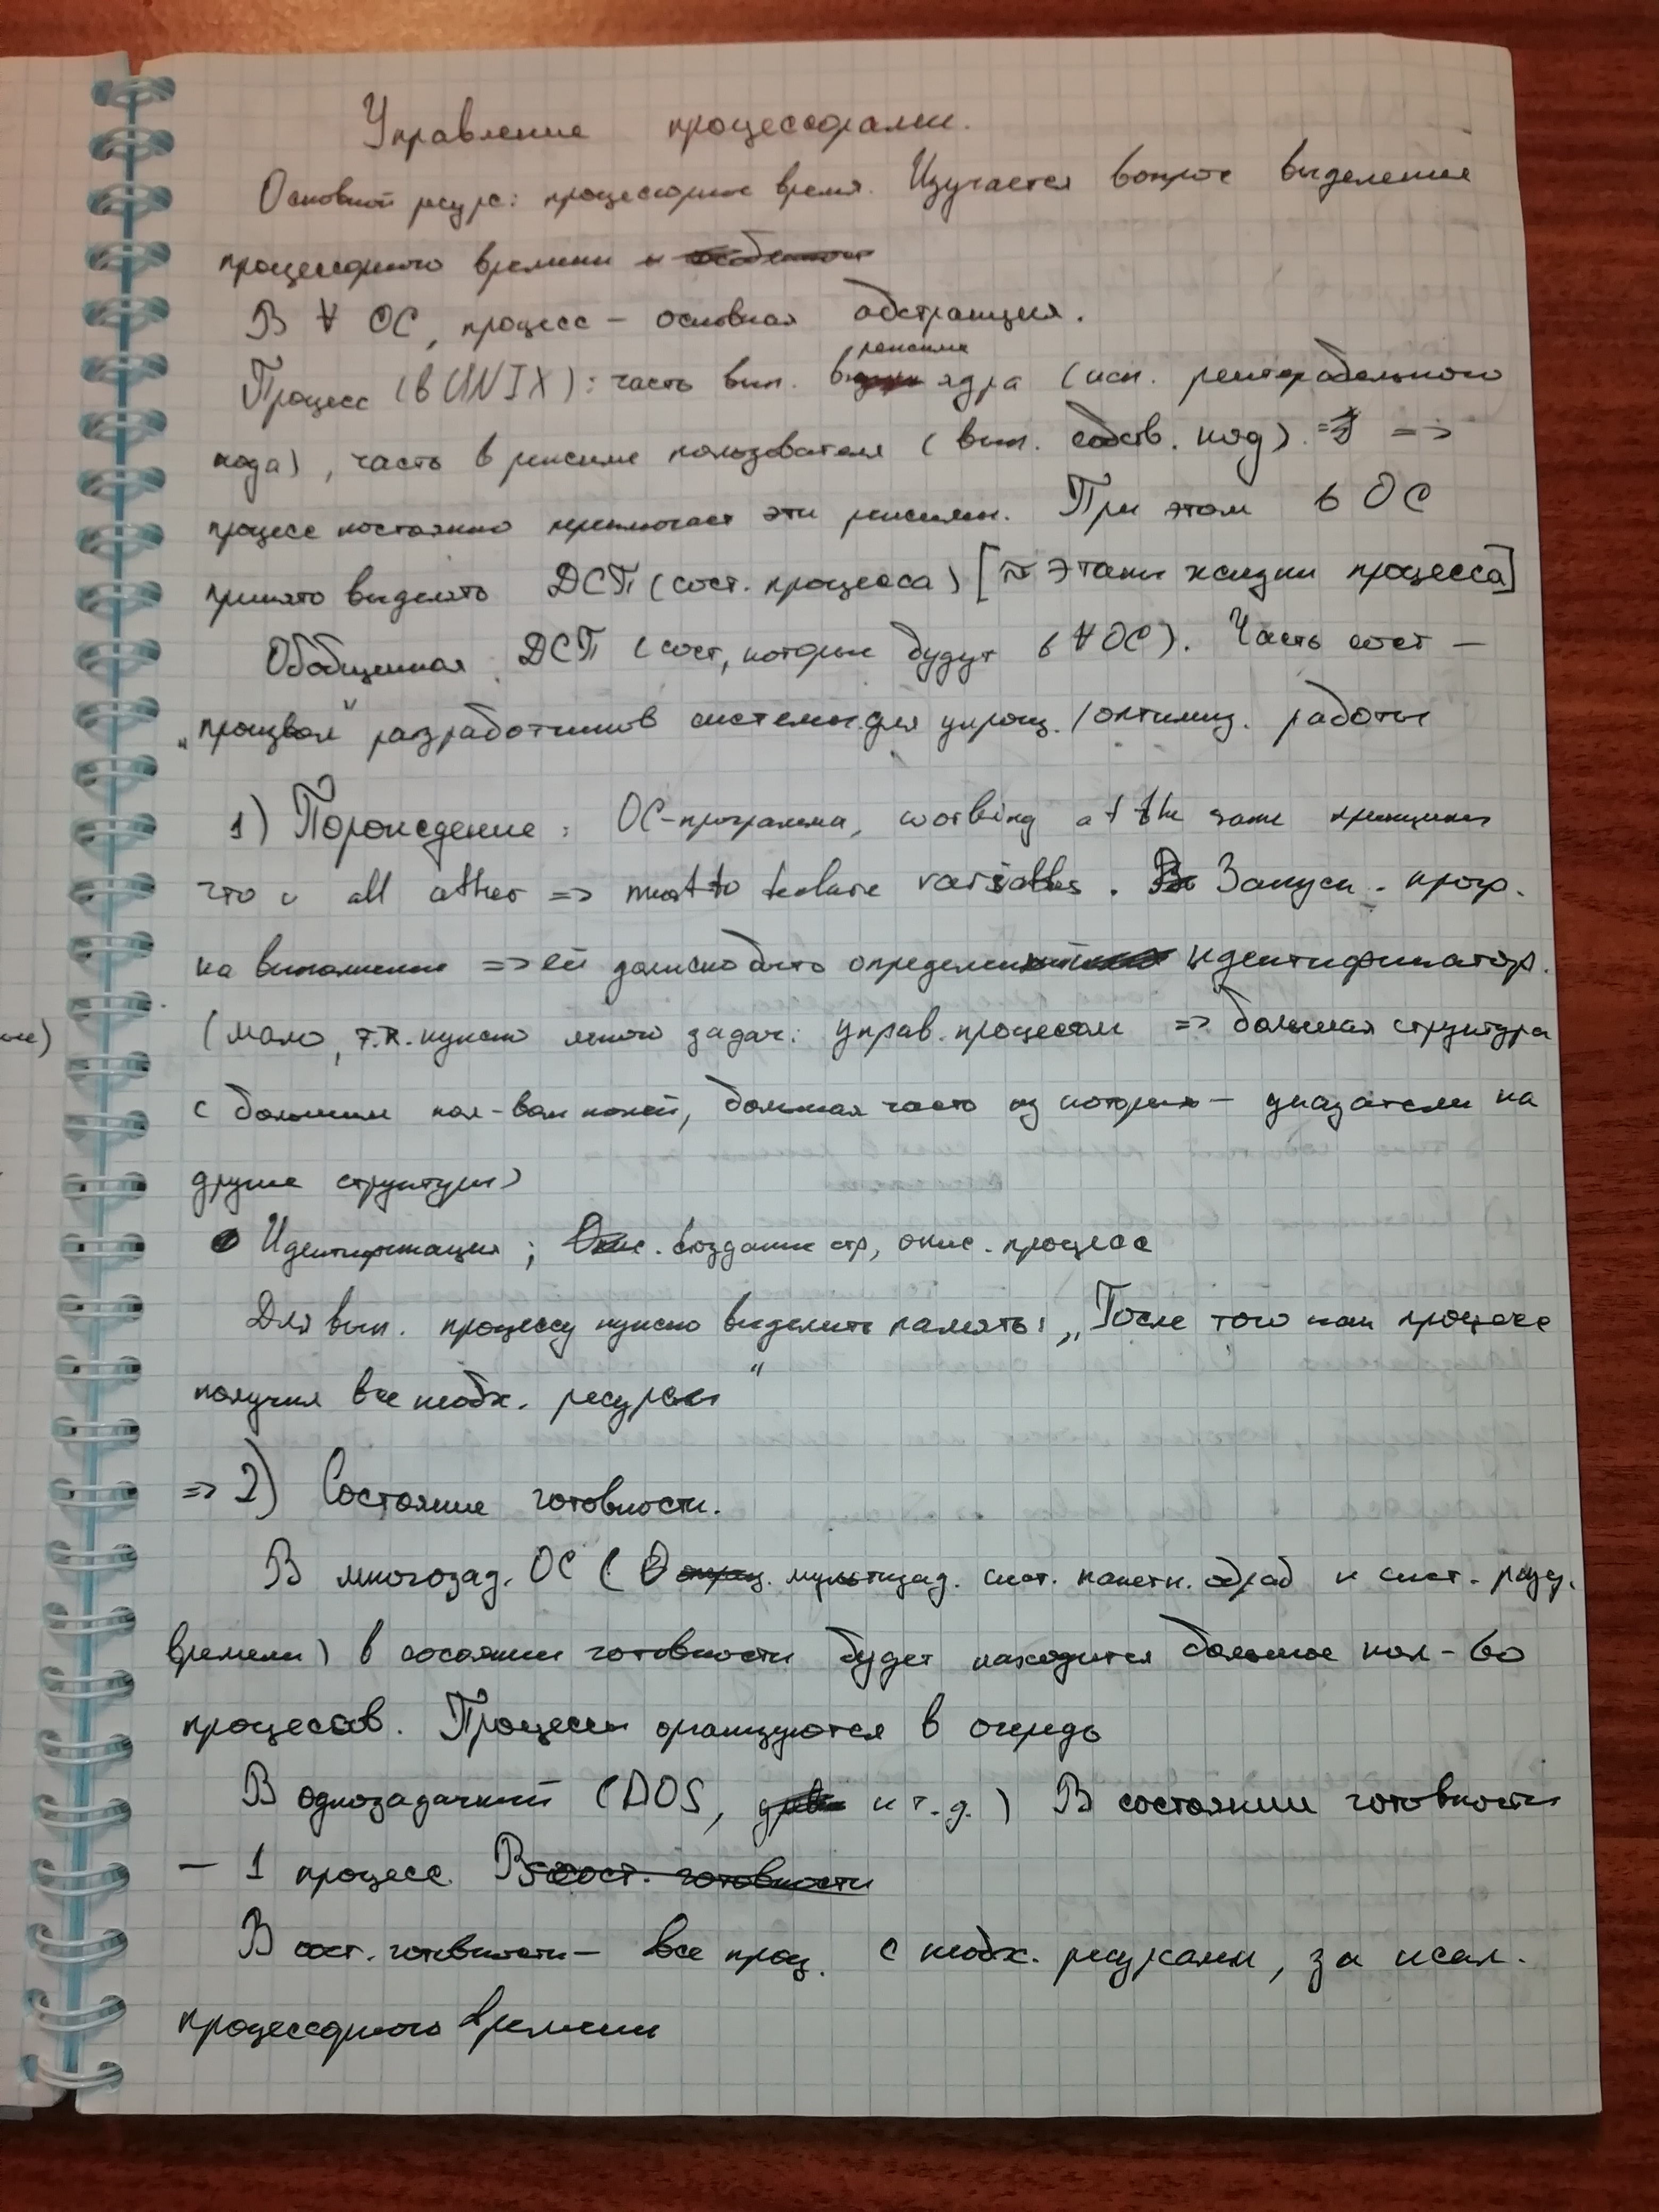 Управление процессорами.
Основной ресурс: процессорное время. Изучается вопрос выделения
процессорного времени и
В ∀ ОС, процесс – основная абстракция.
режиме
Процесс (в UNIX): часть вып. в ядра (исп. реентерабельного
кода), часть в режиме пользователя (вып. собств. код). =>
процесс постоянно переключает эти режимы. При этом в ОС
принято выделять ДСП (сост. процесса) [ Этапы жизни процесса]
Обобщенная ДСП (сост, которые будут в ∀ ОС). Часть сост –
„произвол" разработчиков системы для упрощ. /оптимиз. работы
1) Порождение: ОС-программа, working at the same принципы
что и all other => must to declare variables. Запуск. прогр.
на выполнение => ей должно быть определен идентификатор.
(мало, т.к. нужно много задач: управ. процессом => большая структура
с большим кол-вом полей, большая часть из которых – указатели на
другие структуры)
Идентификация; создание стр, опис. процесс
Для вып. процессу нужно выделить память: „После того как процесс
получил все необх. ресурсы"
=> 2) Состояние готовности.
В многозад. ОС ( мультизад. сист. пакетн. обраб и сист. разд.
времени) в сосоянии готовности будет находится большое кол-во
процессов. Процессы организуются в очередь
В однозадачный (DOS, и т.д.) В состоянии готовности
– 1 процесс. В сост. готовности
В сост. готовности – все проц. с необх. ресурсами, за искл.
процессорного времени